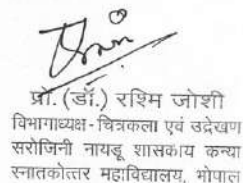 प्रो. (डॉ.) रश्मि जोशी
विभागाध्यक्ष - चित्रकला एवं उद्रेखण
सरोजिनी नायडू शासकीय कन्या
स्नातकोत्तर महाविद्यालय, भोपाल